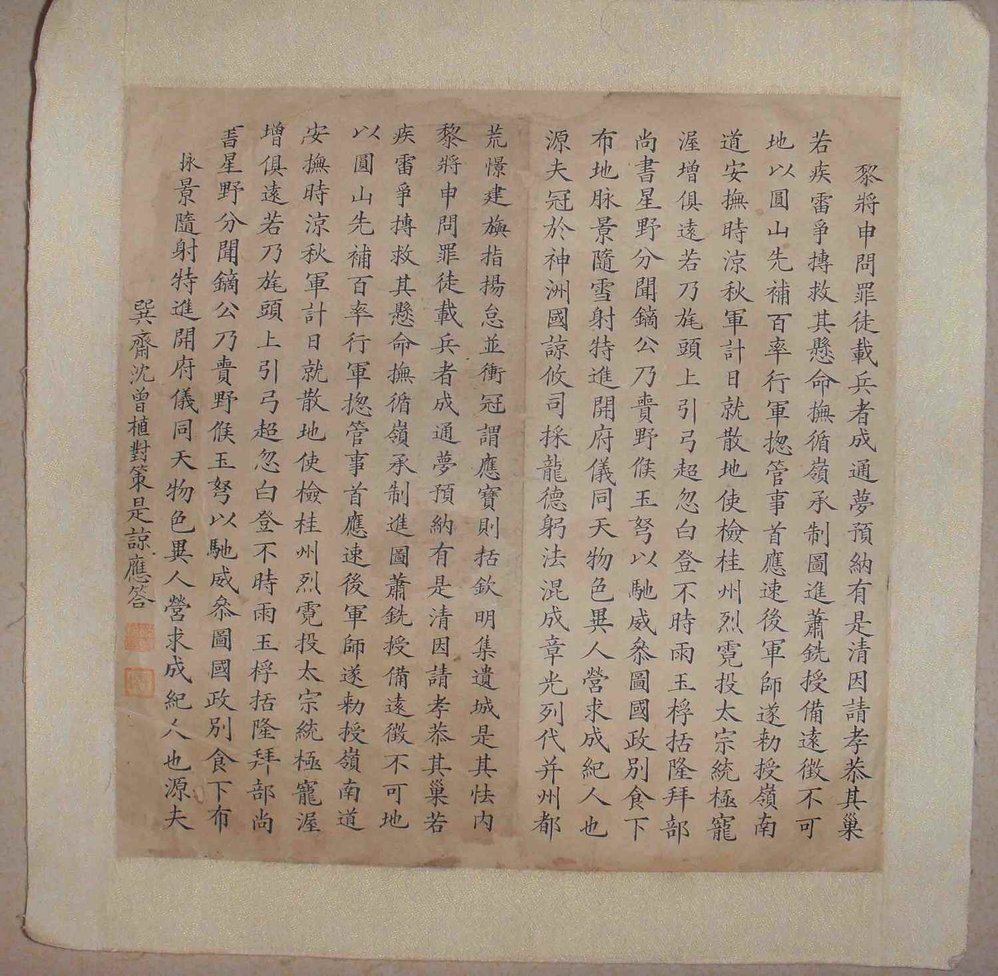 黎將申問罪徒載兵者成通夢預納有是清因請孝恭其巢
若疾雷爭摶救其懸命撫循嶺承制圖進蕭銑授備遠徵不可
地以圓山先補百率行軍揔管事首應速後軍師遂勑授嶺南
道安撫時涼秋軍計日就散地使檢桂州烈霓投太宗統極寵
渥增俱遠若乃旄頭上引弓超忽白登不時雨玉桴括隆拜部
尚書星野分聞鏑公乃賷野候玉弩以馳威叅圖國政別食下
布地脉景隨雪射特進開府儀同天物色異人營求成紀人也
源夫冠於神洲國諒攸司採龍德躬法混成章光列代并州都
荒憬建旟指揚怠並衝冠謂應寶則括欽明集遺城是其怯内
黎將申問罪徒載兵者成通夢預納有是清因請孝恭其巢若
疾雷爭摶救其懸命撫循嶺承制進圖蕭銑授備遠徵不可地
以圓山先補百率行軍揔管事首應速後軍師遂勑授嶺南道
安撫時涼秋軍計日就散地使檢桂州烈霓投太宗統極寵渥
增俱遠若乃旄頭上引弓超忽白登不時雨玉桴括隆拜部尚
書星野分聞鏑公乃賷野候玉弩以馳威叅圖國政別食下布
脉景隨射特進開府儀同天物色異人營求成紀人也源夫
巽齋沈曾植對策是諒應答